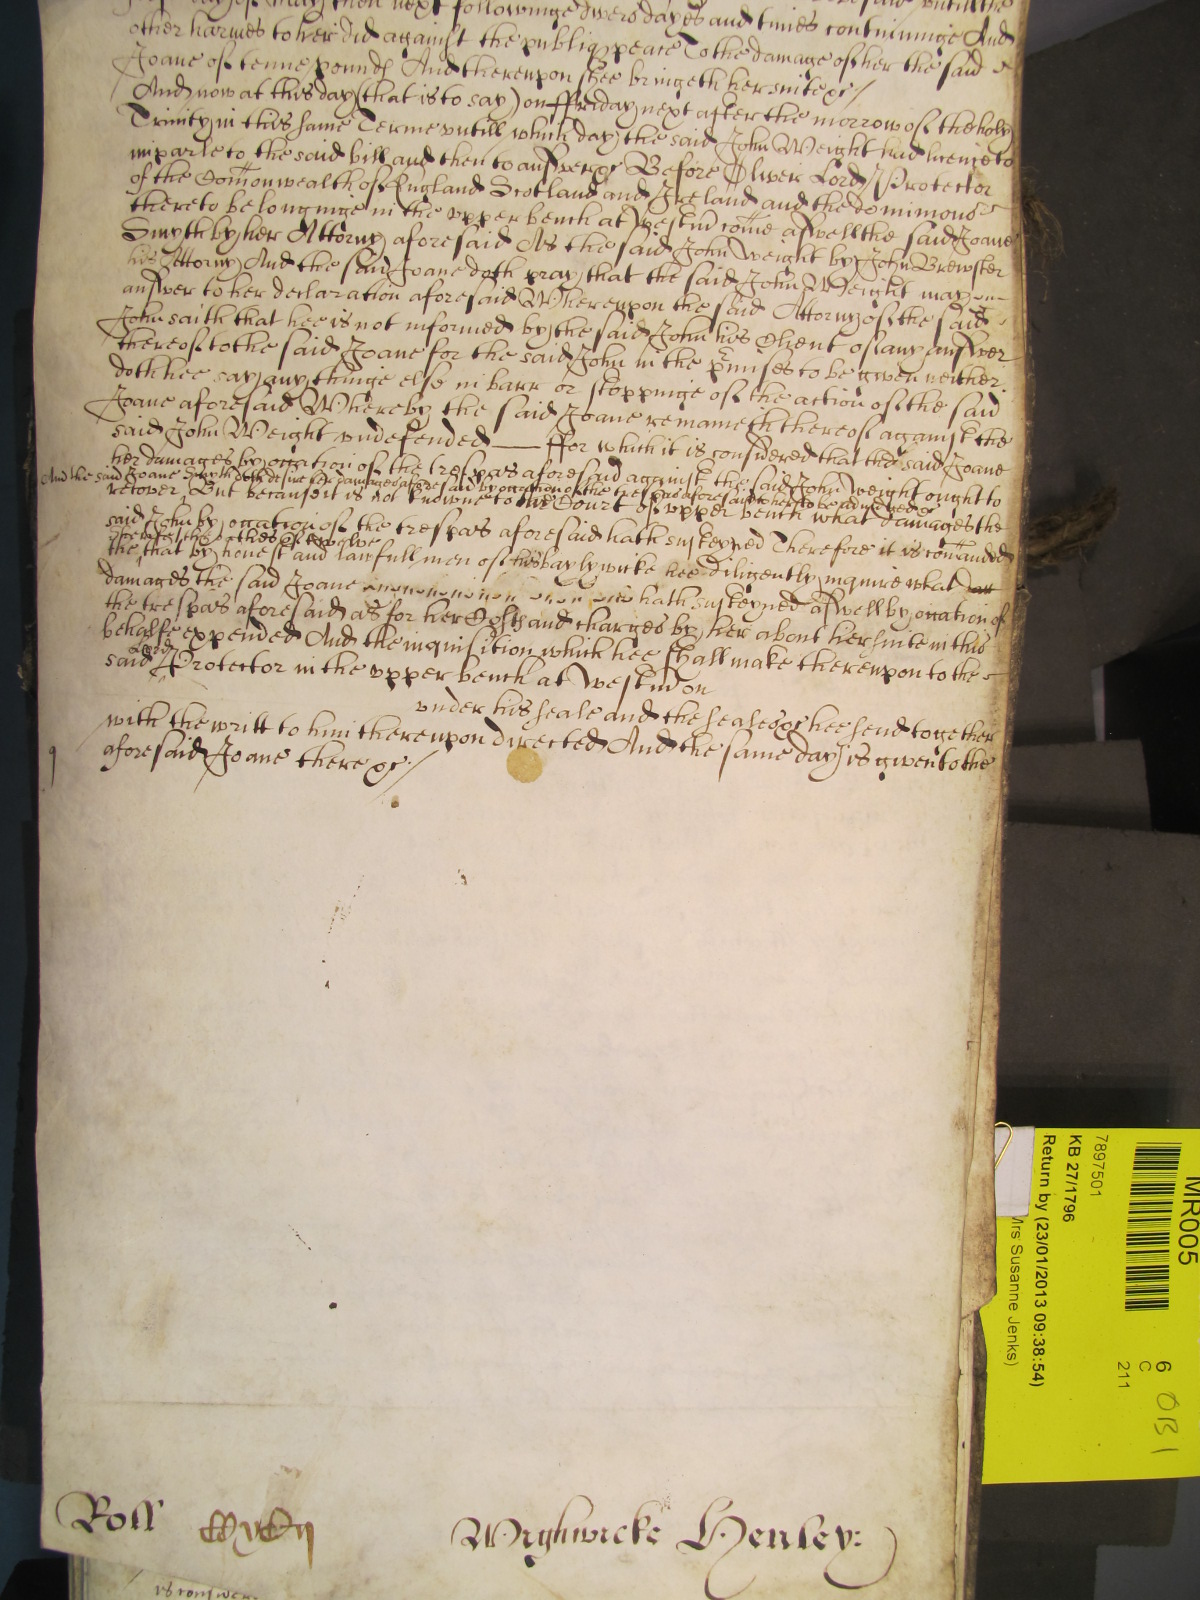 day of May then next followinge divers dayes and times continuinge And
other harmes to her did against the publiq peace To the damage of her the said
Joane of tenne pounds And thereupon shee bringeth her suite &c /
And now at this day (that is to say) on ffriday next after the morrow of the holy
Trinity in this same Terme untill which day the said John Weight had licence to
imparle to the said bill and then to answer &c Before Oliver Lord Protector
of the Comonwealth of England Scotland and Ireland and the dominions
thereto belonginge in the upper bench at Westm come aswell the said Joane
Smyth by her Attorny aforesaid As the said John Weight by John Brewster
his Attorny And the said Joane doth pray that the said John Weight may
answer to her declaration aforesaid Whereupon the said Attorny of the said
John saith that hee is not informed by the said John his Client of any answer
thereof to the said Joane for the said John in the pmises to be given neither
doth hee say any thinge else in barr or stoppinge of the action of the said
Joane aforesaid Whereby the said Joane remaineth thereof against the
said John Weight undefended ffor which it is considered that the said Joane
her damages by occation of the trespas aforesaid against the said John Weight ought to
And the said Joane Smyth doth desire her damages aforesaid by occation of the trespas aforesaid to be adjudged &c
recover But because it is not knowne to the Court of upper bench what damages the
said John by occation of the trespas aforesaid hath susteyned Therefore it is comanded
the that by the oathes of twelve honest and lawfull men of his baylywicke hee diligently inquire what
damages the said Joane hath susteyned aswell by occation of
the trespas aforesaid as for her Costs and charges by her about her suite in this
behalfe expended And the inquisition which hee shall make thereupon to the
said Lord Protector in the upper bench at Westm on
under his seale and the seales &c hee send together
with the writt to him thereupon directed And the same day is given to the
aforesaid Joane there &c /
Roll
Wighwicke Henley:
MR005
7897501
KB 27/1796
Return by (23/01/2013 09:38:54)
Mrs Susanne Jenks)
6
C
211
OB1